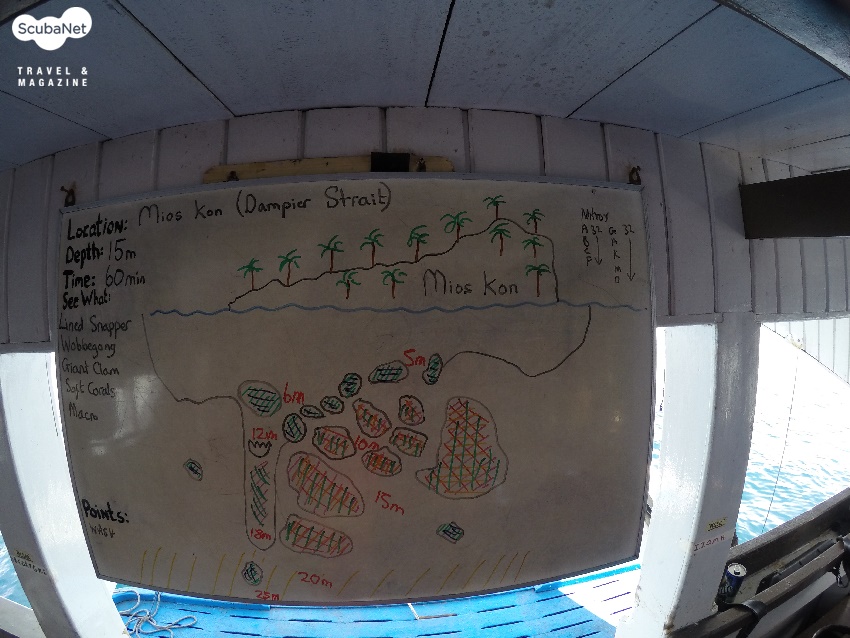 ScubaNet
TRAVEL &
MAGAZINE
Location: Mios Kon (Dampier Strait)
Depth: 15m
Time: 60min
See What:
Lined Snapper
Wobbegong
Giant Clam
Soft Corals
Macro
Points:
WASH
Mios Kon
5m
6m
12m
10m
15m
18m
20m
25m
32
32